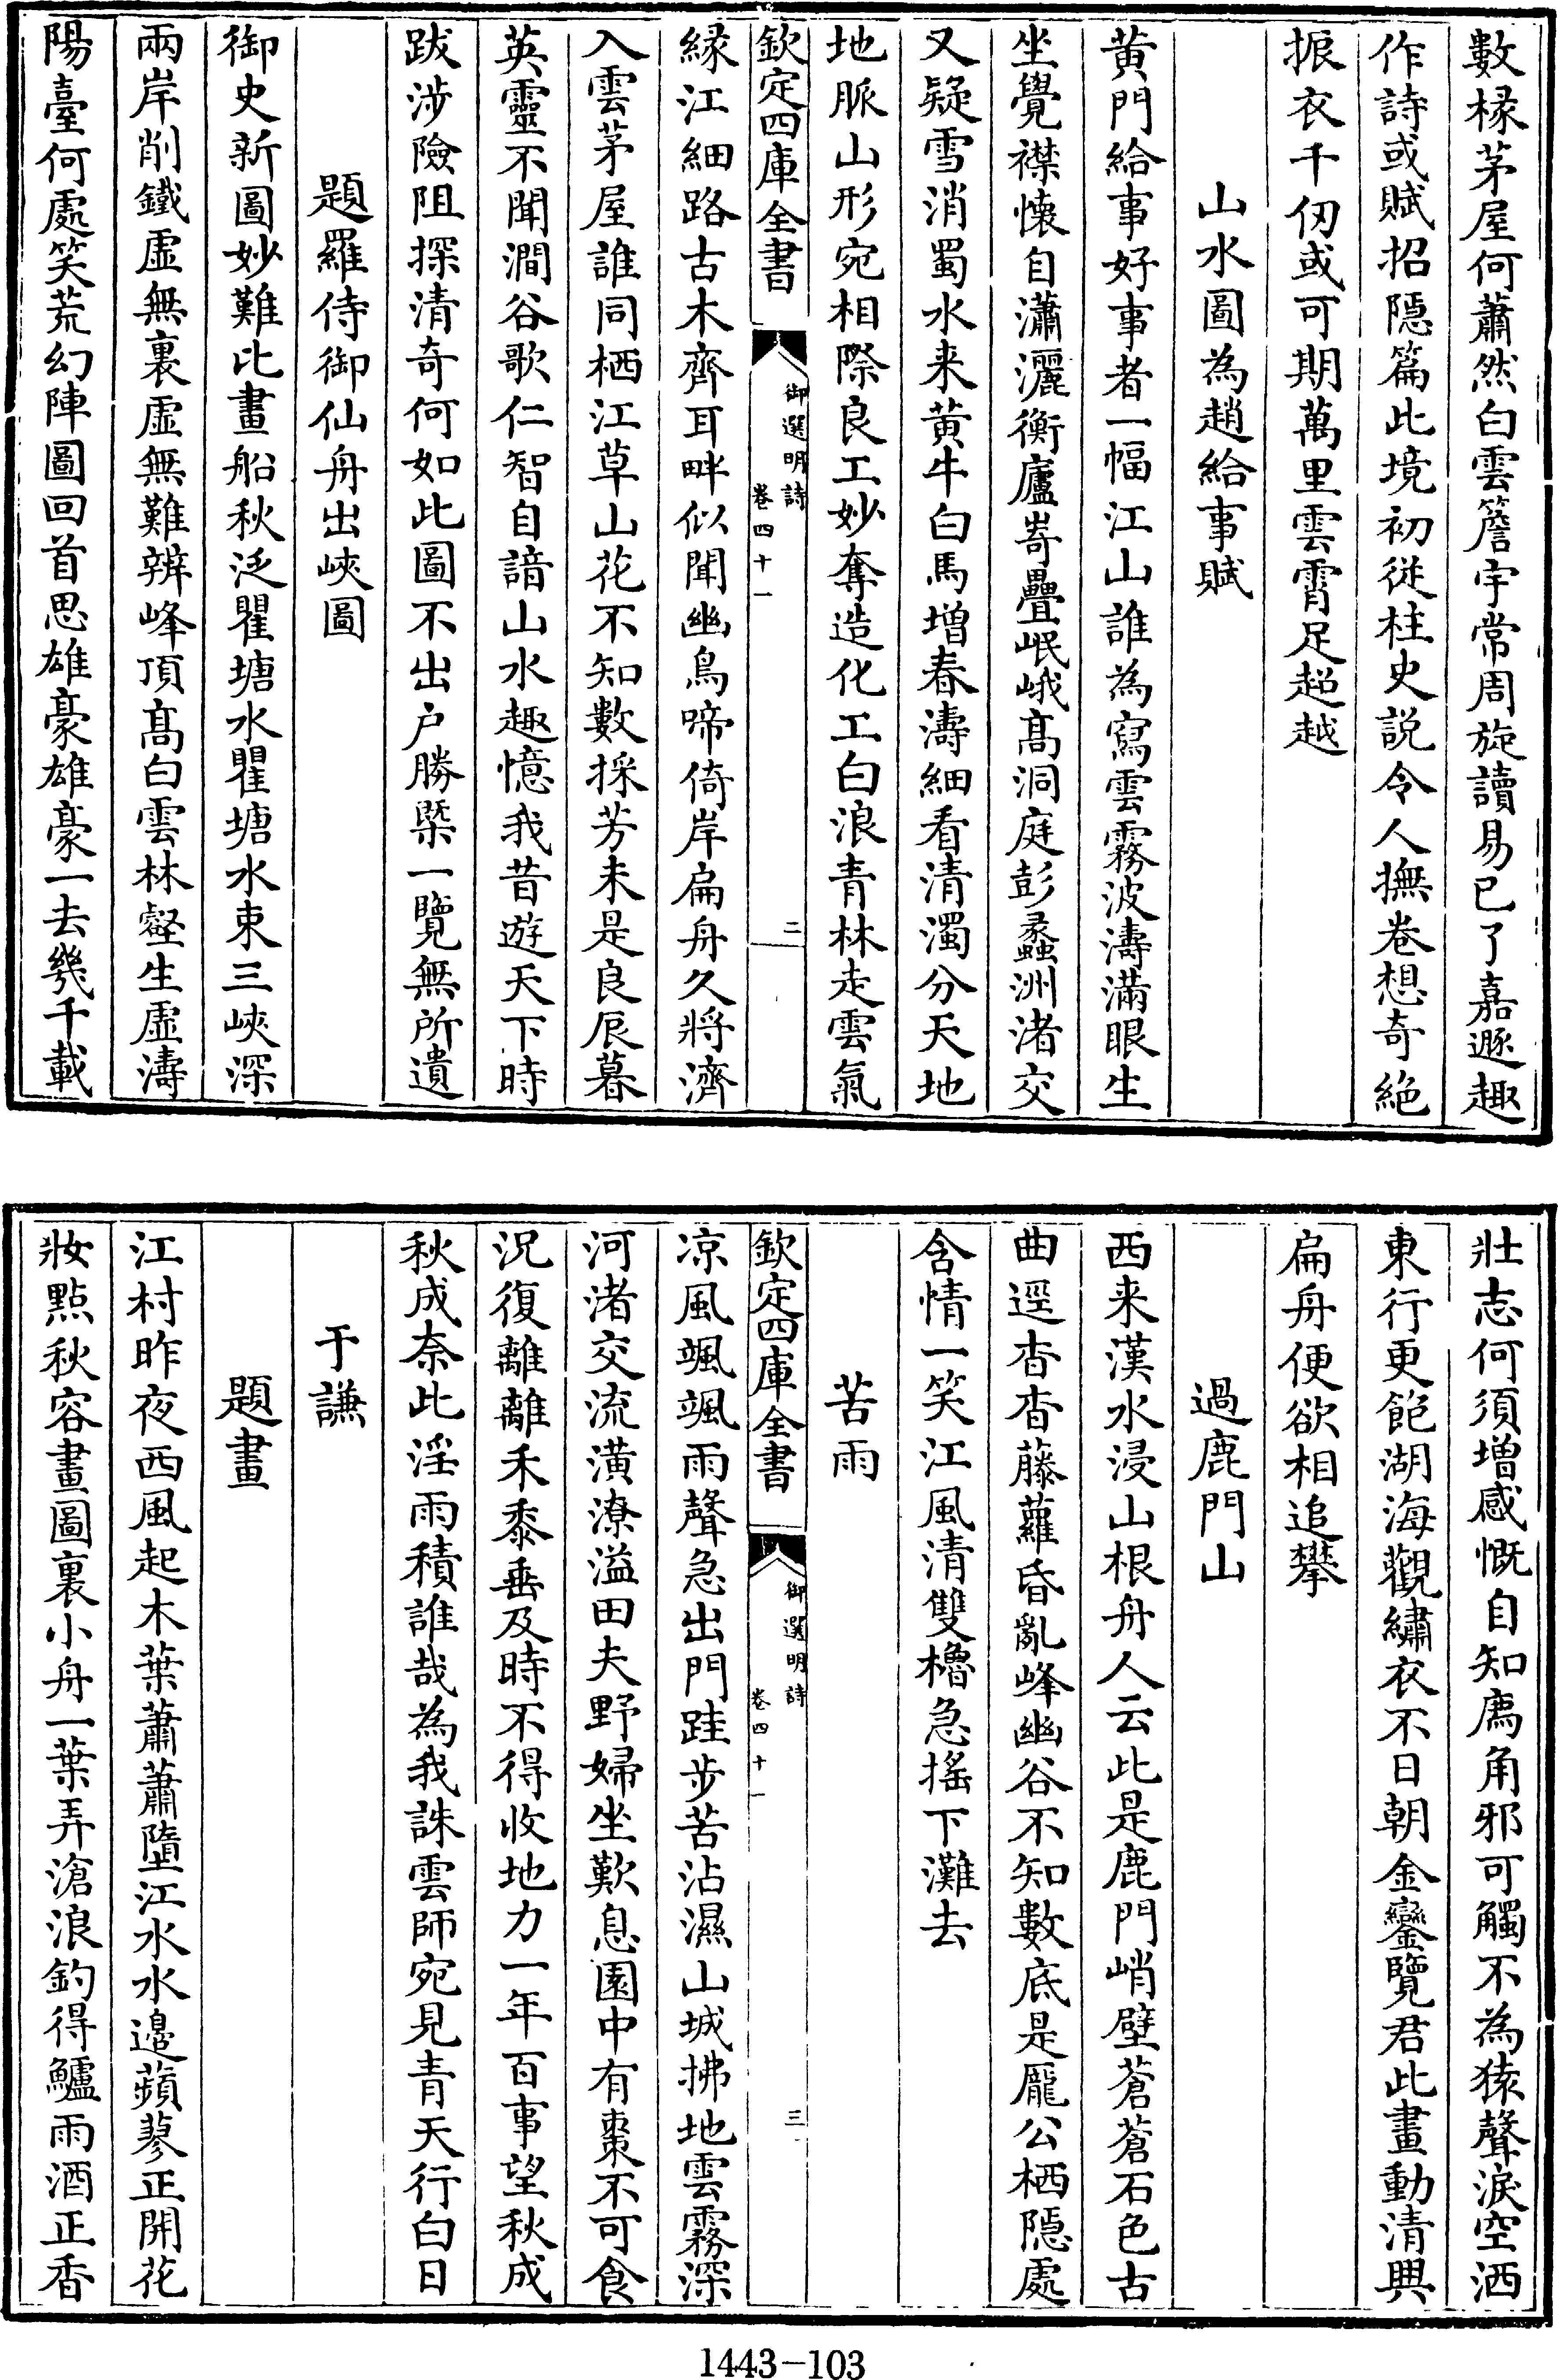 數椽茅屋何蕭然白雲簷宇常周旋讀易已了嘉遯趣
作詩或賦招隠篇此境初從柱史説令人撫卷想奇絶
振衣千仞或可期萬里雲霄足超越
山水圖為趙給事賦
黄門給事好事者一幅江山誰為寫雲霧波濤滿眼生
坐覺襟懐自瀟灑衡廬嵜疊岷峨髙洞庭彭蠡洲渚交
又疑雪消蜀水来黄牛白馬增春濤細看清濁分天地
地脈山形宛相際良工妙奪造化工白浪青林走雲氣
欽定四庫全書
御選明詩
卷四十一
二
縁江細路古木齊耳畔似聞幽鳥啼倚岸扁舟久將濟
入雲茅屋誰同栖江草山花不知數採芳未是良辰暮
英靈不聞澗谷歌仁智自諳山水趣憶我昔遊天下時
跋涉險阻探清奇何如此圖不出户勝槩一覽無所遺
題羅侍御仙舟出峽圖
御史新圖妙難比畫船秋泛瞿塘水瞿塘水束三峽深
兩岸削鐵虚無裏虚無難辨峰頂髙白雲林壑生虚濤
陽臺何處笑荒幻陣圖回首思雄豪雄豪一去幾千載
壯志何須增感慨自知廌角邪可觸不為猿聲淚空洒
東行更飽湖海觀繡衣不日朝金鑾覽君此畫動清興
扁舟便欲相追攀
過鹿門山
西来漢水浸山根舟人云此是鹿門峭壁蒼蒼石色古
曲逕杳杳藤蘿昏亂峰幽谷不知數底是龎公栖隠處
含情一笑江風清雙櫓急揺下灘去
苦雨
欽定四庫全書
御選明詩
卷四十一
三
凉風颯颯雨聲急出門跬步苦沾濕山城拂地雲霧深
河渚交流潢潦溢田夫野婦坐歎息園中有棗不可食
況復離離禾黍垂及時不得收地力一年百事望秋成
秋成奈此淫雨積誰哉為我誅雲師宛見青天行白日
于謙
題畫
江村昨夜西風起木葉蕭蕭墮江水水邊蘋蓼正開花
妝點秋容畫圖裏小舟一葉弄滄浪釣得鱸雨酒正香
1443-103